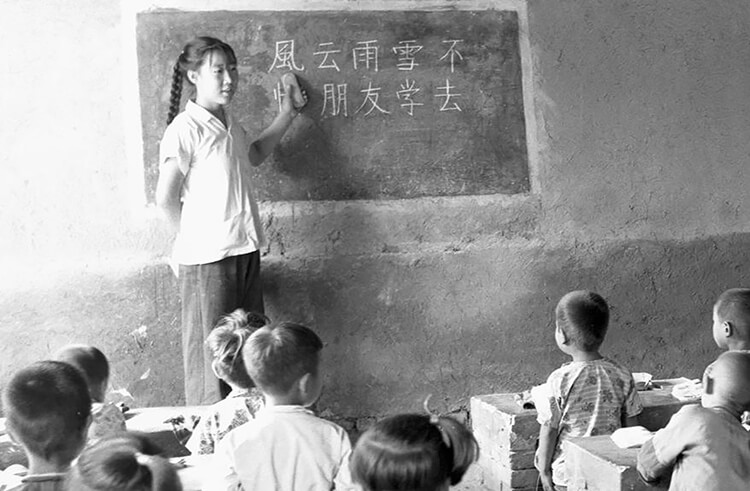 風云雨雪不
朋友学去